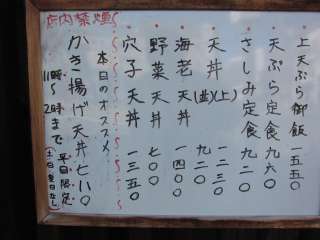 上天ぷら御飯 一五五〇
天ぷら定食 九六〇
さしみ定食 九二〇
天丼(上) 一二三〇
(並) 九二〇
海老天丼 一四〇〇
野菜天丼 七〇〇
穴子天丼 一三五〇
本日のオススメ
かき揚げ天丼 七八〇
平日限定
11時〜2時まで
(土日祝日なし)
店内禁煙